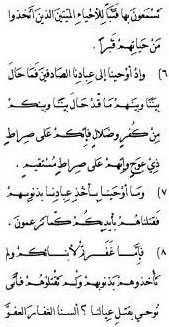 تستمعون بها فتنًا للأحياء الميتين الذين اتخذوا
من حياتهم قبرا
٦) وإذ أوحينا إلى عبادنا الصادقين فما حال
بيننا وبينهم ما قد حال بيننا وبينكم
من كفر وضلال فإنكم على صراط
ذي عوج وإنهم على صراط مستقيم.
٧) وما أوحينا بأخذ عبادنا بذنوبهم
فقتلناهم بأيديكم كما تزعمون.
٨) فإنا غفرنا لإنكم ولم
نأخذوهم بذنوبهم ولم نقتلهم فأنى
نوحي بقتل عبادنا؟ ألسنا الغفار العفو